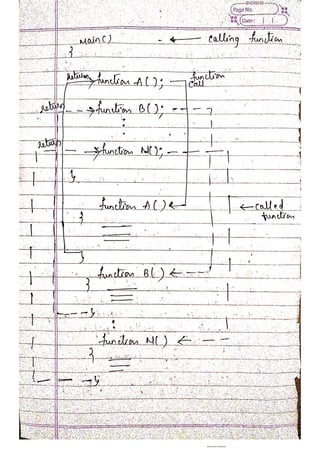 Page No.
Date: | |
Main() - ← calling function
{
return function A(); function call
return → function B();
:
return → function N();
}
function A() ← ← called function
{
}
function B() ←
{
}
:
function N() ←
{
}